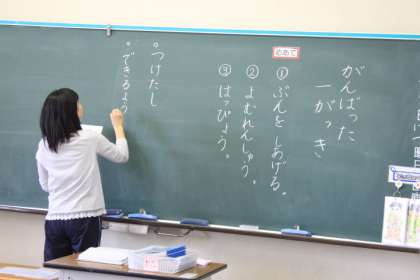 がんばった
一がっき
めあて
①ぶんを しあげる。
②よむれんしゅう。
③はっぴょう。
°つけたし
°できるよう